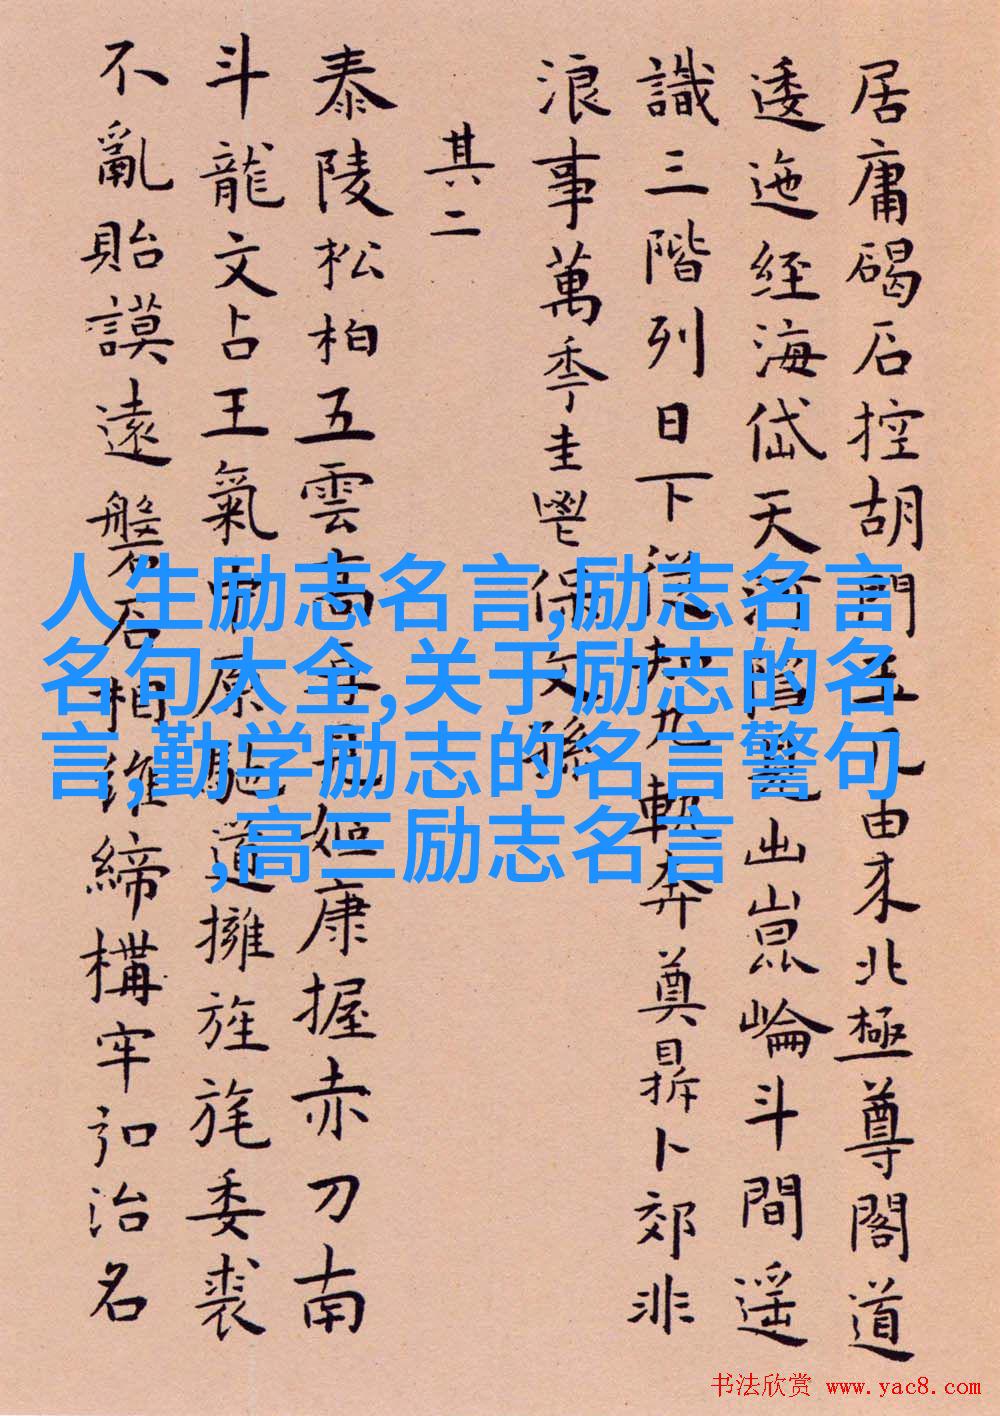 居庸碣石控胡門王气由來北極尊閣道
逶迤經海岱天河出崑崙斗間遥
識三階列日下從知九軌奔奠鼎卜郊非
浪事萬秊圭鬯保文孫
其二
泰陵松柏五雲高再見姬康握赤刀南
斗龍文占王氣中原馳道擁旌旄委裘
不亂貽謨遠磐石相維締構牢弘治名
人生励志名言,励志名言
名句大全,关于励志的名
言,勤学励志的名言警句
,高三励志名言
书法欣赏 www.yac8.com